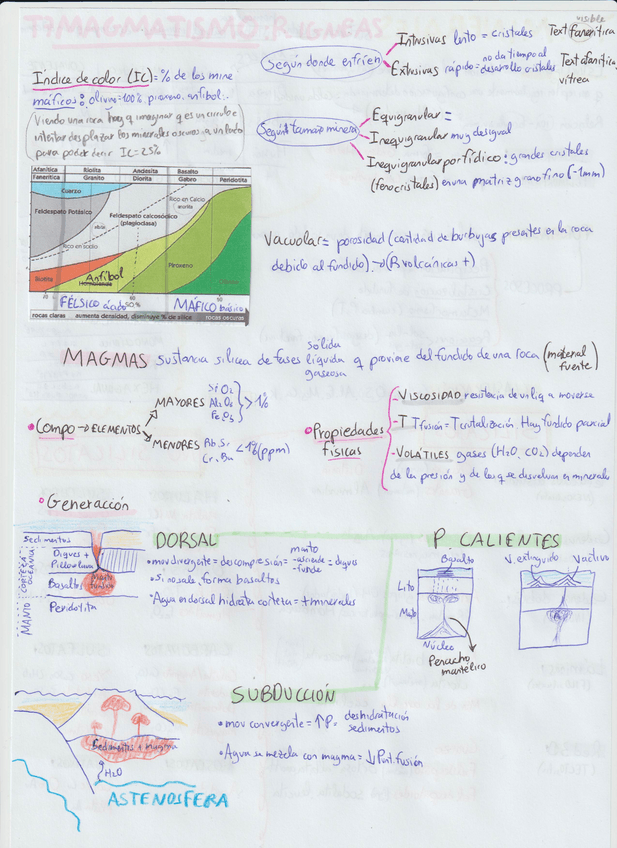 T7 MAGMATISMO. R IGNEAS
Indice de color (IC) = % de los mine
máficos: olivino=100% piroxeno, anfibol..
Viendo una roca hay q imaginar q es un circulo e
intentar desplazar los minerales oscuros a un lado
para poder decir IC=25%
Según donde enfrien
Intrusivas lento = cristales
visible
Text fanerítica
Extrusivas rápido = no da tiempo al desarrollo cristales
Text afanítica,
vítrea
Según tamaño mineral
Equigranular =
Inequigranular muy desigual
Inequigranular porfídico: grandes cristales
(fenocristales) en una matriz grano fino (-1mm)
Afanítica Riolita Andesita Basalto
Fanerítica Granito Diorita Gabro Peridotita
Cuarzo
Feldespato Potásico
Feldespato calcosódico
(plagioclasa)
Rico en Calcio
anortita
Rico en sodio
albita
Biotita
Anfibol
Hornblenda
Piroxeno
FÉLSICO ácido
MÁFICO básico
rocas claras aumenta densidad, disminuye % de sílice rocas oscuras
Vacuolar = porosidad (cantidad de burbujas presentes en la roca
debido al fundido). → (R volcánicas +)
MAGMAS sustancia silicea de fases sólida líquida gaseosa q proviene del fundido de una roca (material fuente)
Compo → ELEMENTOS
MAYORES SiO2 Al2O3 FeO3 > 1%
MENORES Rb Sr Cr Ba < 1% (ppm)
Propiedades
físicas
- VISCOSIDAD resistencia de un liq a moverse
- T Tfusión = Tcristalización Hay fundido parcial
- VOLÁTILES gases (H2O, CO2) dependen
de la presión y de los q se disuelvan en minerales
Generación
Sedimentos
Diques +
Pillow lava
Basaltos
Manto fundido
Peridotita
CORTEZA OCEÁNICA
MANTO
DORSAL
mov divergente = descompresión = manto -asciende -funde = diques
Si no sale, forma basaltos
Agua en dorsal hidrata corteza = + minerales
P CALIENTES
Basalto
Lito
Manto
Núcleo
Penacho
mantélico
V. extinguido V activo
SUBDUCCIÓN
mov convergente = ↑P = deshidratación sedimentos
Agua se mezcla con magma = ↓ Punt. fusión
Sedimentos + magma
H2O
ASTENOSFERA